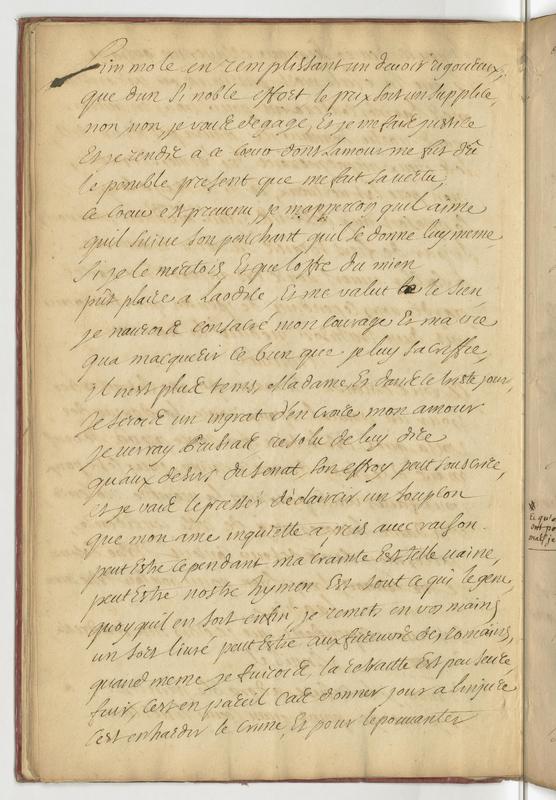 L'immole en remplissant un devoir rigoureux,
que d'un si noble effort le prix soit un supplice,
non non, je vous degage, Et je me fais justice
Et je rends a ce coeur dont l'amour me fut dû
le penible present que me fait sa vertu,
ce coeur est prevenu, je m'apperçois qu'il aime
qu'il suive son penchant qu'il se donne luy meme
Si je le meritois, Et que l'offre du mien
pust plaire a Laodice, Et me valut le sien
je n'aurois consacré mon courage Et ma vie
qu'a m'acquerir ce bien que je luy sacrifie,
il n'est plus tems, Madame, Et dans ce triste jour,
Je serois un ingrat d'en croire mon amour
je verray Prusias resolu de luy dire
qu'aux desirs du Senat son effroy peut souscrire,
et je vais le presser d'eclaircir un soupçon
que mon ame inquiette a pris avec raison.
peut Estre cependant ma crainte Est elle vaine,
peut Estre nostre hymen Est tout ce qui le gene,
quoy qu'il en soit enfin je remets en vos mains
un sort livré peut Estre aux fureurs des romains,
quand meme je fuirois, la retraitte Est peu seure,
fuir, c'est en pareil cas donner jour a l'injure
c'est enhardir le crime, Et pour l'epouvanter
Et qu'o